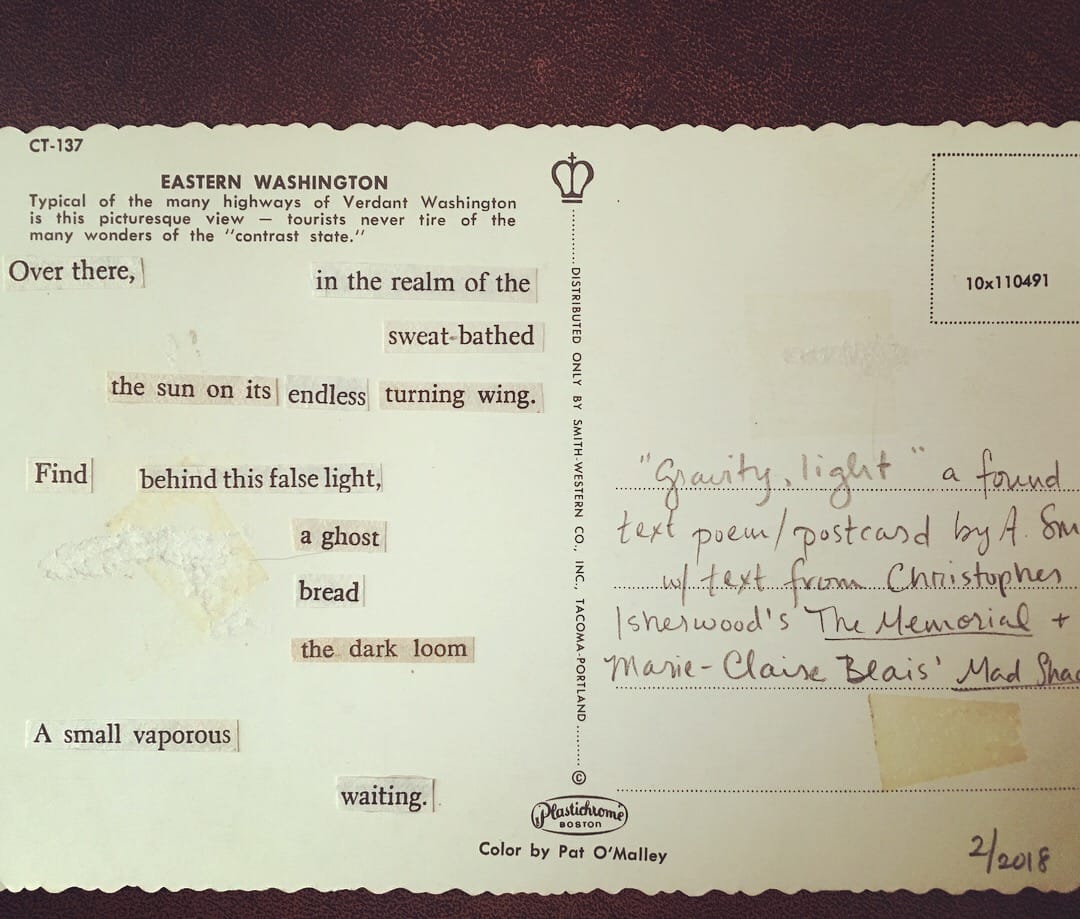 CT-137
EASTERN WASHINGTON
Typical of the many highways of Verdant Washington
is this picturesque view — tourists never tire of the
many wonders of the "contrast state."
Over there, in the realm of the
sweat-bathed
the sun on its endless turning wing.
Find behind this false light,
a ghost
bread
the dark loom
A small vaporous
waiting.
DISTRIBUTED ONLY BY SMITH-WESTERN CO., INC., TACOMA-PORTLAND
©
Plastichrome
BOSTON
Color by Pat O'Malley
10x110491
"Gravity, light" a found
text poem/postcard by A. Sm
w/ text from Christopher
Isherwood's The Memorial +
Marie-Claire Blais' Mad Shad
2/2018